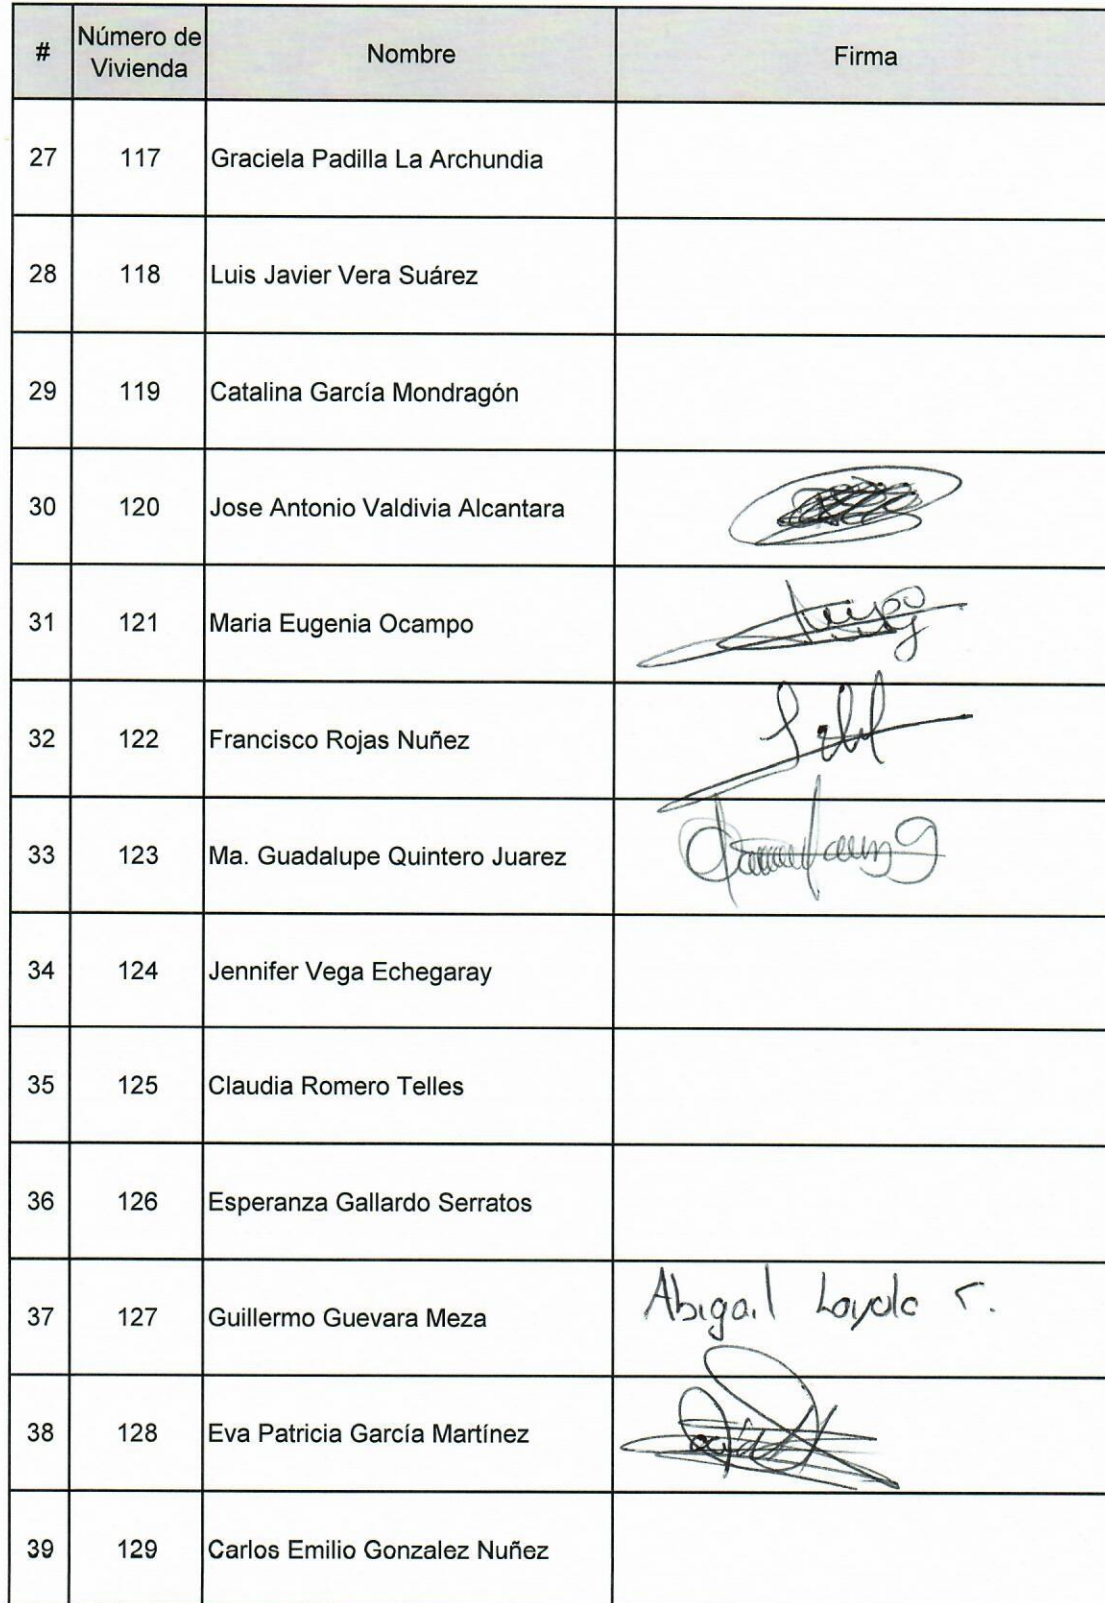 # Número de Vivienda Nombre Firma
27 117 Graciela Padilla La Archundia
28 118 Luis Javier Vera Suárez
29 119 Catalina García Mondragón
30 120 Jose Antonio Valdivia Alcantara
31 121 Maria Eugenia Ocampo
32 122 Francisco Rojas Nuñez
33 123 Ma. Guadalupe Quintero Juarez
34 124 Jennifer Vega Echegaray
35 125 Claudia Romero Telles
36 126 Esperanza Gallardo Serratos
37 127 Guillermo Guevara Meza Abigail Loyola
38 128 Eva Patricia García Martínez
39 129 Carlos Emilio Gonzalez Nuñez